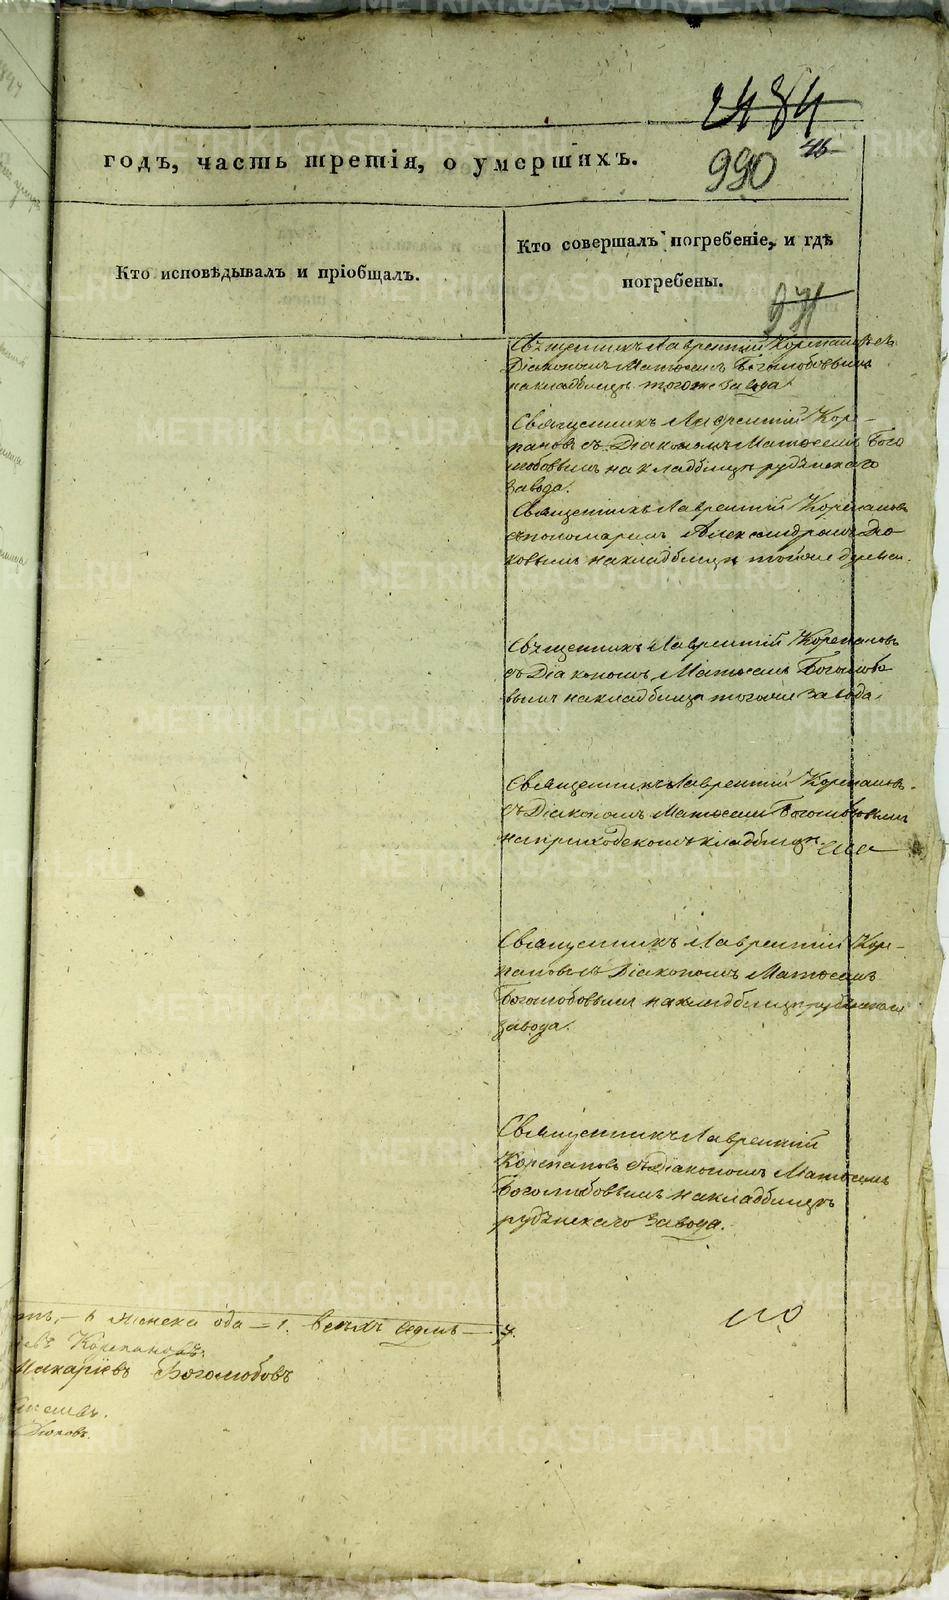 2484
годъ, часть третія, о умершихъ.
990
Кто исповѣдывалъ и пріобщалъ.
Кто совершалъ погребеніе, и гдѣ
погребены.
Священникъ Лаврентій Корепановъ съ
Діакономъ Матѳеемъ Боголюбовымъ
на кладбищѣ тогоже завода.
Священникъ Лаврентій Коре-
пановъ съ Діакономъ Матѳеемъ Бого
любовымъ на кладбищѣ рудянскаго
завода.
Священникъ Лаврентій Корепановъ
съ пономаремъ Александромъ
ковымъ на кладбищѣ тойже деревни.
Священникъ Лаврентій Корепановъ
съ Діакономъ Матѳеемъ Боголюбо
вымъ на кладбищѣ тогоже завода.
Священникъ Лаврентій Корепановъ
съ Діакономъ Матѳеемъ Боголюбовымъ
на приходскомъ кладбищѣ.
Священникъ Лаврентій Коре-
пановъ съ Діакономъ Матѳеемъ
Боголюбовымъ на кладбищѣ рудянскаго
завода.
Священникъ Лаврентій
Корепановъ съ діакономъ Матѳеемъ
Боголюбовымъ на кладбищѣ
рудянскаго завода.
6 женска ода - 1. всехъ седмь - 7.
Корепановъ.
Макаріевъ Боголюбовъ
METRIKI.GASO-URAL.RU